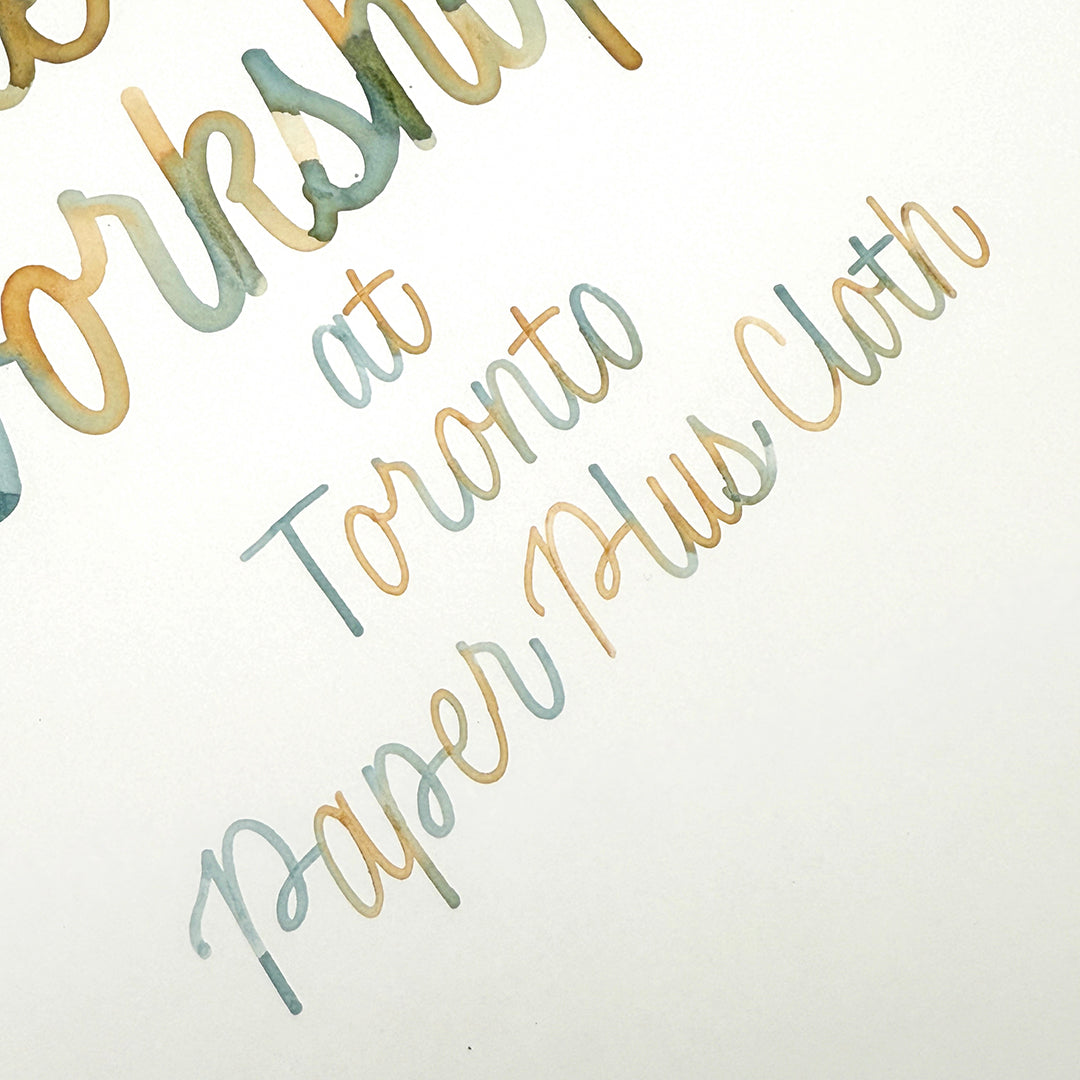 workshop
at
Toronto
Paper Plus Cloth